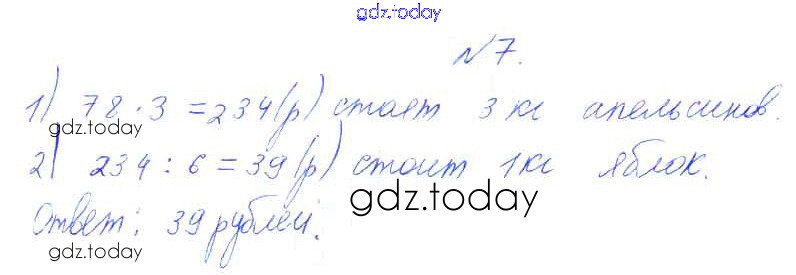 gdz.today
№7.
1) 78·3=234(р) стоят 3 кг апельсинов.
gdz.today
2) 234:6=39(р) стоит 1кг яблок.
gdz.today
Ответ: 39 рублей.
gdz.today